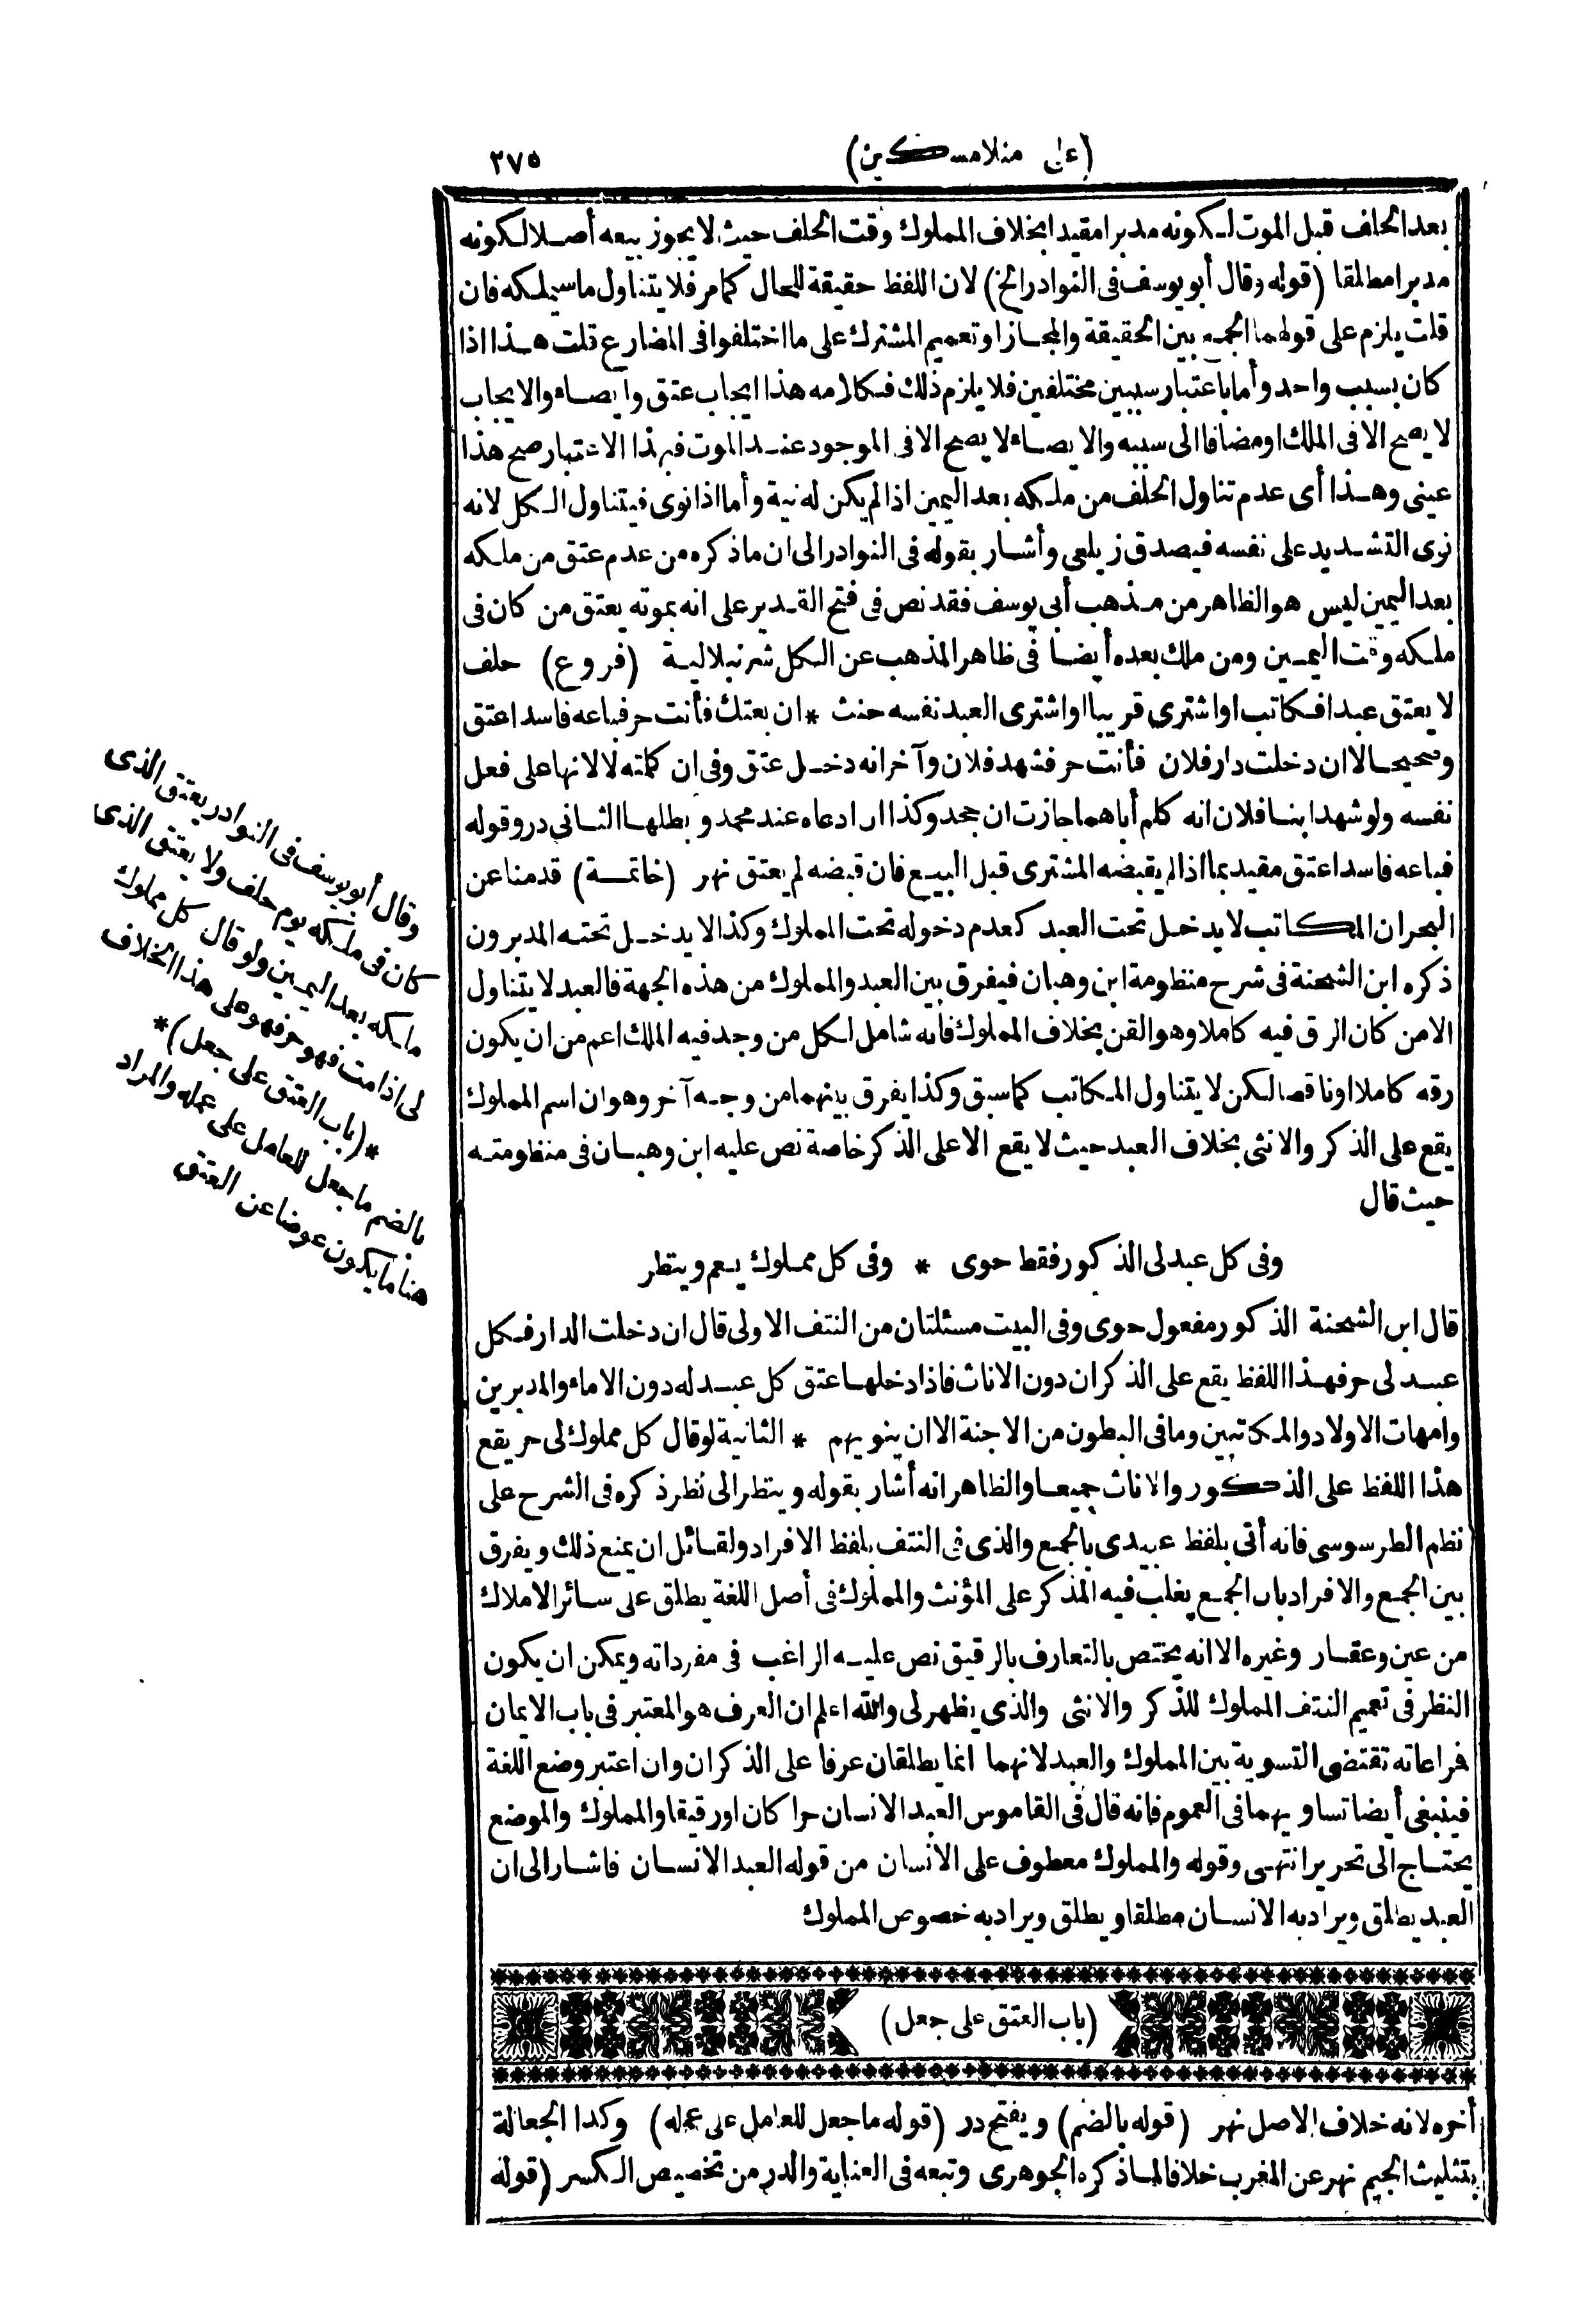 (على منلا مسكين) ٢٧٥
بعد الحلف قبل الموت لكونه مدبرا مقيدا بخلاف المملوك وقت الحلف حيث لا يجوز بيعه أصلا لكونه
مدبرا مطلقا (قوله وقال أبو يوسف فى النوادر الخ) لان اللفظ حقيقة للحال كما مر فلا يتناول ما سيملكه فان
قلت يلزم على قولهما الجمع بين الحقيقة والمجاز او تعميم المشترك على ما اختلفوا فى المضارع قلت هذا اذا
كان بسبب واحد وأما باعتبار سببين مختلفين فلا يلزم ذلك فكلامه هذا ايجاب عتق وايصاء والايجاب
لا يصح الا فى الملك او مضافا الى سببه والايصاء لا يصح الا فى الموجود عند الموت فبهذا الاعتبار صح هذا
عينى وهذا أى عدم تناول الحلف من ملكه بعد اليمين اذا لم يكن له نية وأما اذا نوى فيتناول الكل لانه
نوى التشديد على نفسه فيصدق زيلعى وأشار بقوله فى النوادر الى ان ما ذكره من عدم عتق من ملكه
بعد اليمين ليس هو الظاهر من مذهب أبى يوسف فقد نص فى فتح القدير على انه بموته يعتق من كان فى
ملكه وقت اليمين ومن ملك بعده أيضا فى ظاهر المذهب عن الكل شرنبلالية (فروع) حلف
لا يعتق عبدا فكاتب او اشترى قريبا او اشترى العبد نفسه حنث * ان بعتك فأنت حر فباعه فاسدا عتق
وصحيحا لا ان دخلت دار فلان فأنت حر فشهد فلان وآخر انه دخل عتق وفى ان كلمته لا لانها على فعل
نفسه ولو شهد ابنا فلان انه كلم أباهما جازت ان جحد وكذا ان ادعاه عند محمد وبطلها الثانى در وقوله
فباعه فاسدا عتق مقيد بما اذا لم يقبضه المشترى قبل البيع فان قبضه لم يعتق نهر (خاتمة) قدمنا عن
البحر ان المكاتب لا يدخل تحت العبد كعدم دخوله تحت المملوك وكذا لا يدخل تحته المدبرون
ذكره ابن الشحنة فى شرح منظومة ابن وهبان فيفرق بين العبد والمملوك من هذه الجهة فالعبد لا يتناول
الا من كان الرق فيه كاملا وهو القن بخلاف المملوك فانه شامل لكل من وجد فيه الملك اعم من ان يكون
رقه كاملا او ناقصا لكن لا يتناول المكاتب كما سبق وكذا يفرق بينهما من وجه آخر وهو ان اسم المملوك
يقع على الذكر والانثى بخلاف العبد حيث لا يقع الا على الذكر خاصة نص عليه ابن وهبان فى منظومته
حيث قال
وفى كل عبد لى الذكور فقط حوى * وفى كل مملوك يعم وينظر
قال ابن الشحنة الذكور مفعول حوى وفى البيت مسئلتان من النتف الاولى قال ان دخلت الدار فكل
عبد لى حر فهذا اللفظ يقع على الذكران دون الاناث فاذا دخلها عتق كل عبد له دون الاماء والمدبرين
وامهات الاولاد والمكاتبين وما فى البطون من الاجنة الا ان ينويهم * الثانية لو قال كل مملوك لى حر يقع
هذا اللفظ على الذكور والاناث جميعا والظاهر انه أشار بقوله وينظر الى نظر ذكره فى الشرح على
نظم الطرسوسى فانه أتى بلفظ عبيدى بالجمع والذى فى النتف بلفظ الافراد ولقائل ان يمنع ذلك ويفرق
بين الجمع والافراد بان الجمع يغلب فيه المذكر على المؤنث والمملوك فى أصل اللغة يطلق على سائر الاملاك
من عين وعقار وغيره الا انه يختص بالتعارف بالرقيق نص عليه الراغب فى مفرداته ويمكن ان يكون
النظر فى تعميم النتف المملوك للذكر والانثى والذى يظهر لى والله اعلم ان العرف هو المعتبر فى باب الايمان
فراعاته تقتضى التسوية بين المملوك والعبد لانهما انما يطلقان عرفا على الذكران وان اعتبر وضع اللغة
فينبغى أيضا تساويهما فى العموم فانه قال فى القاموس العبد الانسان حرا كان او رقيقا والمملوك والموضع
يحتاج الى تحرير انتهى وقوله والمملوك معطوف على الانسان من قوله العبد الانسان فاشار الى ان
العبد يطلق ويراد به الانسان مطلقا ويطلق ويراد به خصوص المملوك
(باب العتق على جعل)
أخره لانه خلاف الاصل نهر (قوله بالضم) ويفتح در (قوله ما جعل للعامل على عمله) وكذا الجعالة
بتثليث الجيم نهر عن المغرب خلافا لما ذكره الجوهرى وتبعه فى العناية والدر من تخصيص الكسر (قوله
وقال أبو يوسف فى النوادر يعتق الذى
كان فى ملكه يوم حلف ولا يعتق الذى
ملكه بعد اليمين ولو قال كل مملوك
لى اذا مت فهو حر فهو على هذا الخلاف
*(باب العتق على جعل)*
بالضم ما جعل للعامل على عمله والمراد
هنا ما يكون عوضا عن العتق